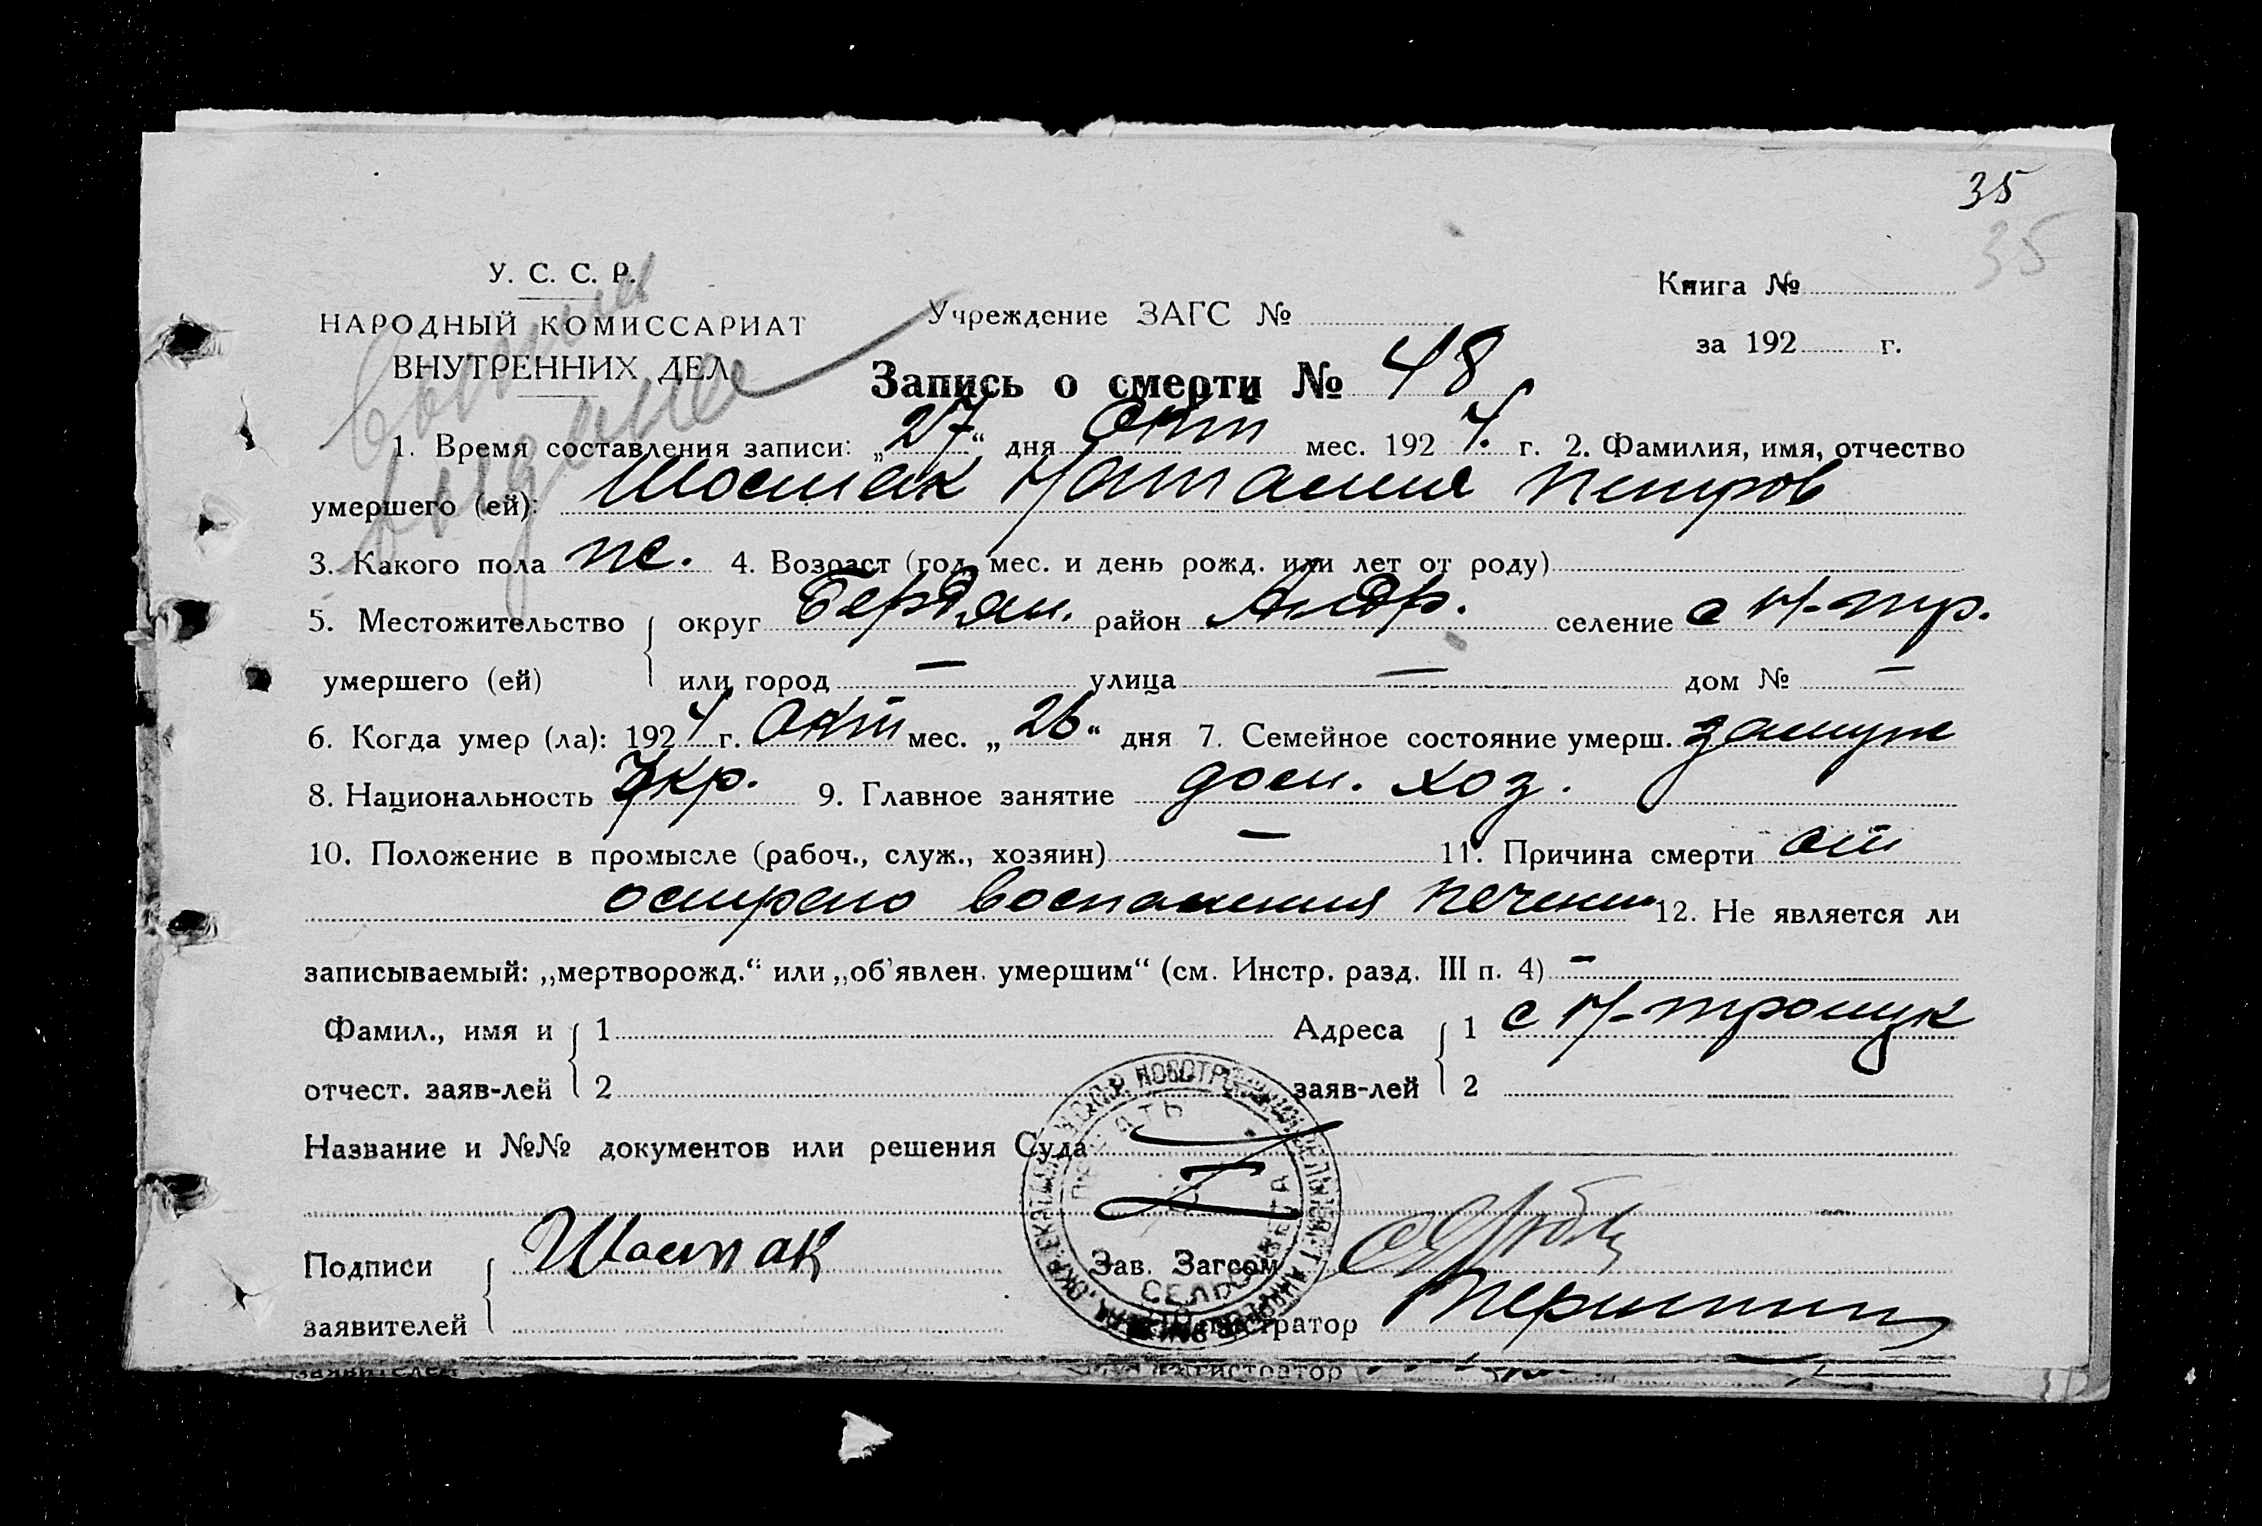 35
35
У. С. С. Р.
НАРОДНЫЙ КОМИССАРИАТ
ВНУТРЕННИХ ДЕЛ
выдана
Учреждение ЗАГС №
Книга №
за 192 г.
Запись о смерти № 48
1. Время составления записи: „27“ дня Окт мес. 1924. г. 2. Фамилия, имя, отчество
умершего (ей): Шостак Наталия Петров
3. Какого пола ж. 4. Возраст (год, мес. и день рожд. или лет от роду)
5. Местожительство округ Бердян. район Андр. селение с Н-тр.
умершего (ей) или город — улица — дом № —
6. Когда умер (ла): 1924 г. Окт мес. „26“ дня 7. Семейное состояние умерш. замуж
8. Национальность Укр. 9. Главное занятие дом. хоз.
10. Положение в промысле (рабоч., служ., хозяин) — 11. Причина смерти от
острого воспаления печени 12. Не является ли
записываемый: „мертворожд.“ или „об'явлен. умершим“ (см. Инстр. разд. III п. 4) –
Фамил., имя и 1 Адреса 1 с Н-троицк
отчест. заяв-лей 2 заяв-лей 2
Название и №№ документов или решения Суда
Подписи Шостак Зав. Загсом
заявителей Регистратор
ПЕЧАТЬ СЕЛЬСОВЕТА
заявителей Регистратор